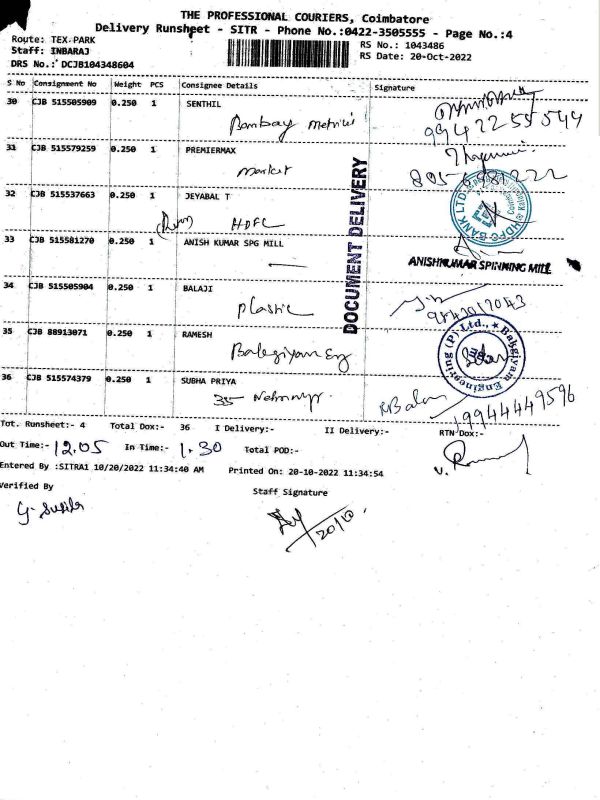 THE PROFESSIONAL COURIERS, Coimbatore
Delivery Runsheet - SITR - Phone No.:0422-3505555 - Page No.:4
Route: TEX-PARK
Staff: INBARAJ
DRS No.: DCJB104348604
RS No.: 1043486
RS Date: 20-Oct-2022
S No Consignment No Weight PCS Consignee Details Signature
30 CJB 515505909 0.250 1 SENTHIL
Bombay
9942255544
31 CJB 515579259 0.250 1 PREMIERMAX
market
32 CJB 515537663 0.250 1 JEYABAL T
HDFC
HDFC BANK LTD
33 CJB 515581270 0.250 1 ANISH KUMAR SPG MILL
ANISHKUMAR SPINNING MILL
DOCUMENT DELIVERY
34 CJB 515505904 0.250 1 BALAJI
plastic
35 CJB 88913071 0.250 1 RAMESH
Bakgiyam Engineering (P) Ltd.,
36 CJB 515574379 0.250 1 SUBHA PRIYA
35
R Balan
19944449596
Tot. Runsheet:- 4 Total Dox:- 36 I Delivery:- II Delivery:- RTN Dox:-
Out Time:- 12.05 In Time:- 1.30 Total POD:-
Entered By :SITRA1 10/20/2022 11:34:40 AM Printed On: 20-10-2022 11:34:54
Verified By
Staff Signature
20/10